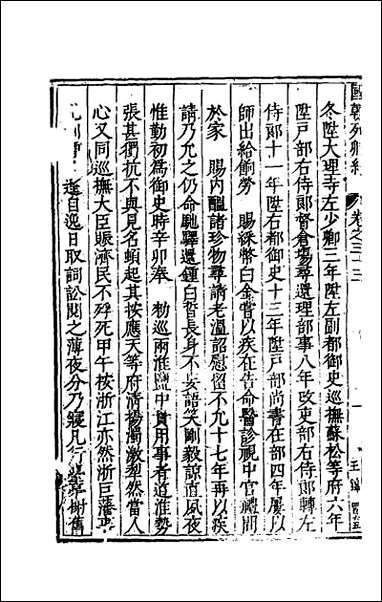 國朝列卿紀 卷之三十三
冬陞大理寺左少卿三年陞左副都御史巡撫蘇松等府六年
陞戶部右侍郎督倉場尋還理部事八年改吏部右侍郎轉左
侍郎十一年陞右都御史十三年陞戶部尚書在部四年屢以
師出給餉勞 賜綵幣白金嘗以疾在告命醫診視中官體問
於家 賜內醞諸珍物尋請老溫詔慰留不允十七年再以疾
請乃允之仍命馳驛還鍾白皙長身不妄語笑剛毅諒直夙夜
惟勤初為御史時辛卯奉 勑巡兩淮鹽中貴用事者道淮勢
張甚衡抗不與見名頓起其按應天等府清揚濁激犁然當人
心又同巡撫大臣賑濟民不殍死甲午按浙江亦然浙巨藩
逢自逸日取詞訟閱之薄夜分乃寢凡行